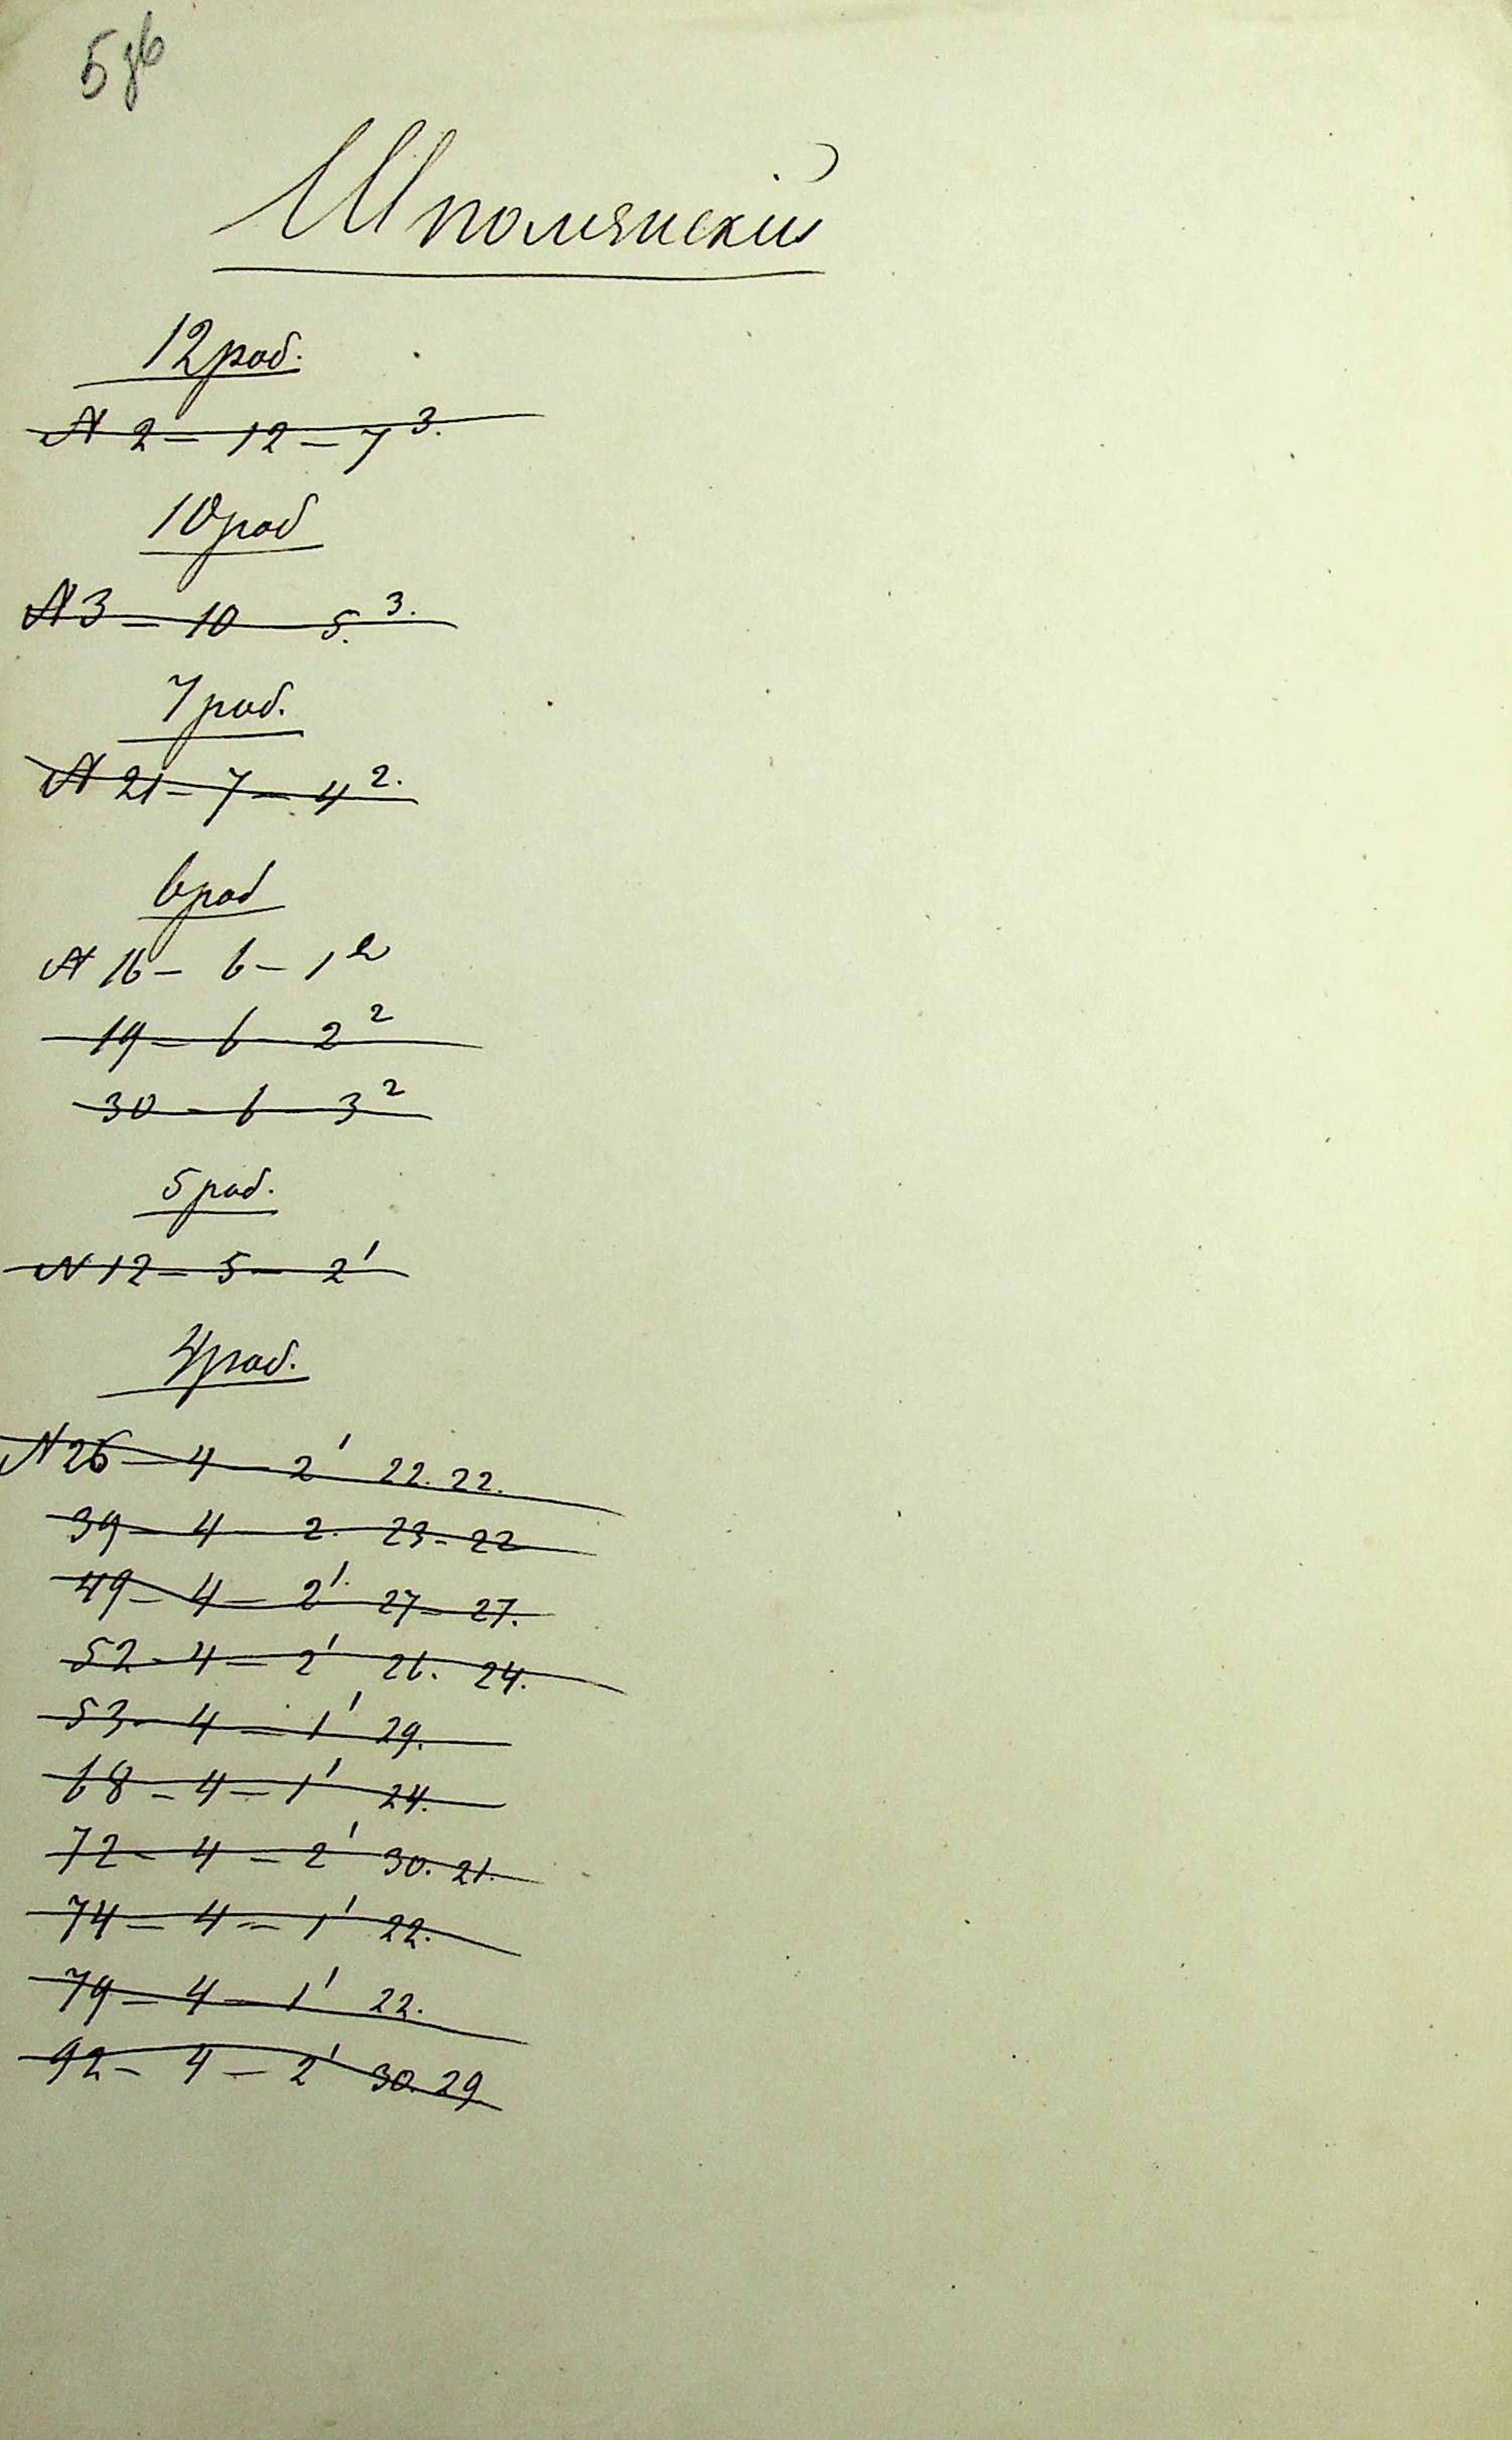 Шполянскій
12 раб.
N 2 – 12 – 7 3.
10 раб
N 3 – 10 – 5. 3.
7 раб.
N 21 – 7 – 4 2.
6 раб
N 16 – 6 – 1 2
19 – 6 – 2 2
30 – 6 – 3 2
5 раб.
N 12 – 5 – 2 1
4 раб.
N 26 – 4 – 2 1 22. 22.
39 – 4 – 2. 23 – 22
49 – 4 – 2 1. 27 – 27.
52 – 4 – 2 1 26. 24.
53 – 4 – 1 1 29.
68 – 4 – 1 1 24.
72 – 4 – 2 1 30. 21.
74 – 4 – 1 1 22.
79 – 4 – 1 1 22.
92 – 4 – 2 1 30. 29